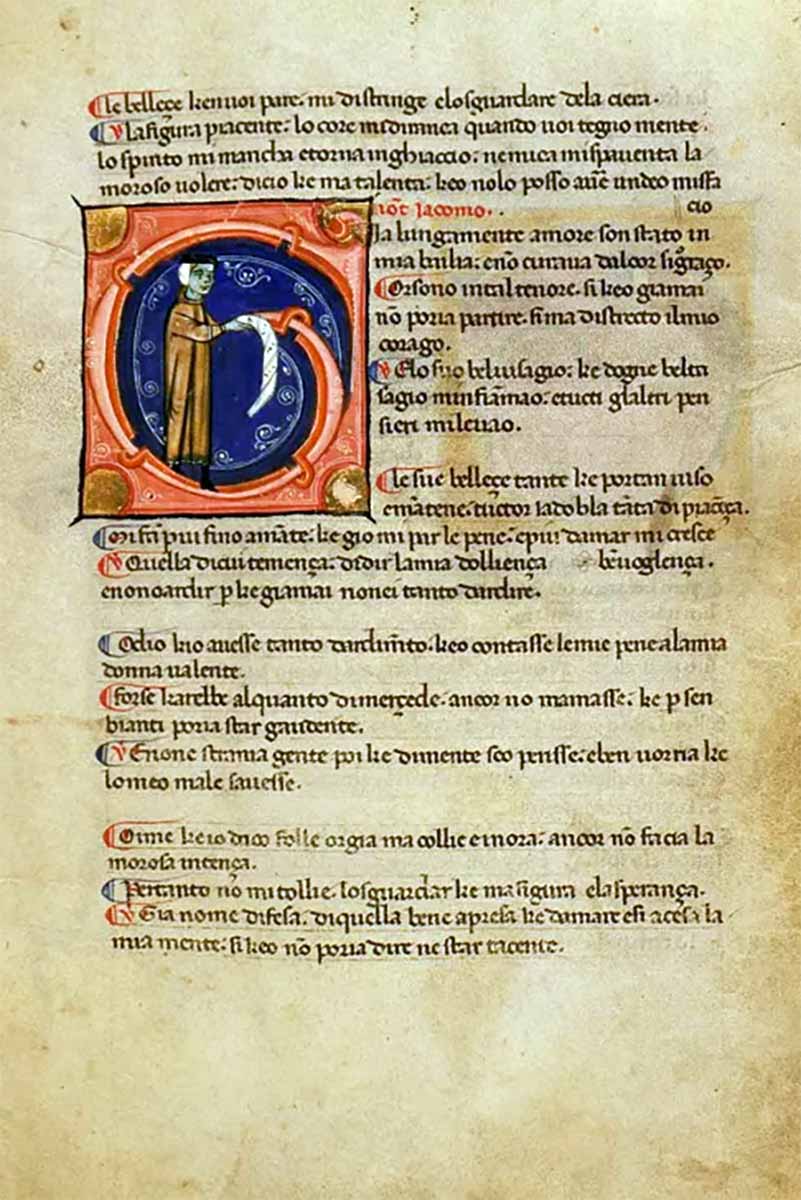 le bellece kenuoi pare. mi distringe elosguardare dela ciera.
Lafigura piacente: lo core midimica quando uoi tegno mente.
lo spirito mi mancha etorna inghiaccio: nemica mispauenta la
moroso uolere: dicio ke ma talenta: keo nolo posso auē undeo missa
not Iacomo. cio
Ia lungamente amore son stato in
mia bailia: enō curaua
Orsono intal tenore. si keo giamai
nō poria partire. sima distrecto ilmio
coraço.
Elo suo beluisagio: ke dogne
sagio etucti glaltri pen
sieri mileuao.
le sue bellece tante ke portan uiso
di piaēça.
fino amāte: ke gio mi par le pene: epiu damar mi cresce
Quella dicui temença: didir lamia dolliença benuoglença.
enonoardir p̄ ke giamai nonei tanto dardire.
Odio kio auesse tanto keo contasse lemie pene alamia
donna ualente.
forse karebbe alquanto dimerçede. ancor no mamasse: ke p̄ sen
bianti poria star gaudente.
Enone strania gente poi ke dimente seo pensse: eben uorria ke
lomeo male sauesse.
Oime keio dico folle orgia ma collie einora: ancor nō facia la
morosa intença.
Pertanto nō mi tollie. losguardar ke ma figura elasperança.
Gia nome difesa: diquella bene apresa ke damare esi acesa la
mia mente: si keo nō poria dire ne star tacente.